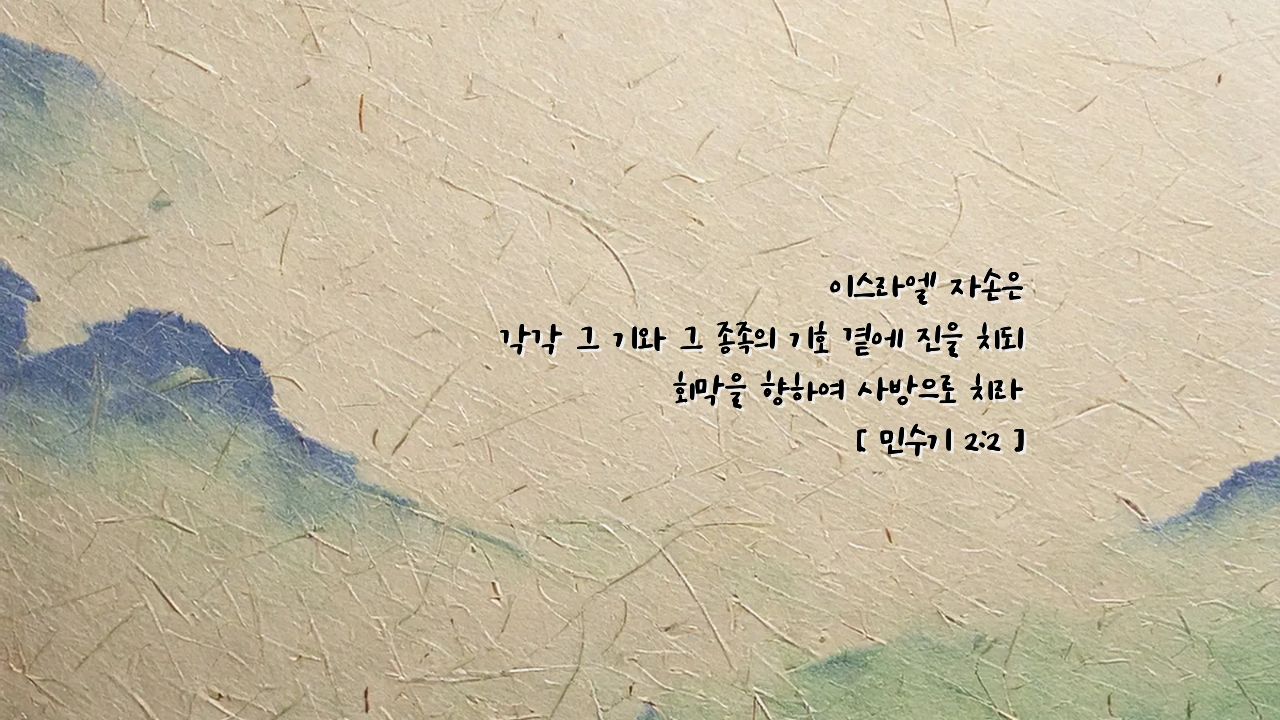 이스라엘 자손은
각각 그 기와 그 종족의 기호 곁에 진을 치되
회막을 향하여 사방으로 치라
[ 민수기 2:2 ]